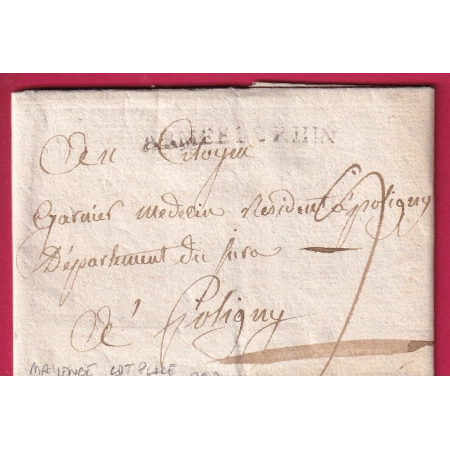 ARMEE DU RHIN
Au Citoyen
Garnier medecin Resident à poligny
Département du jura
A poligny
MAYENCE